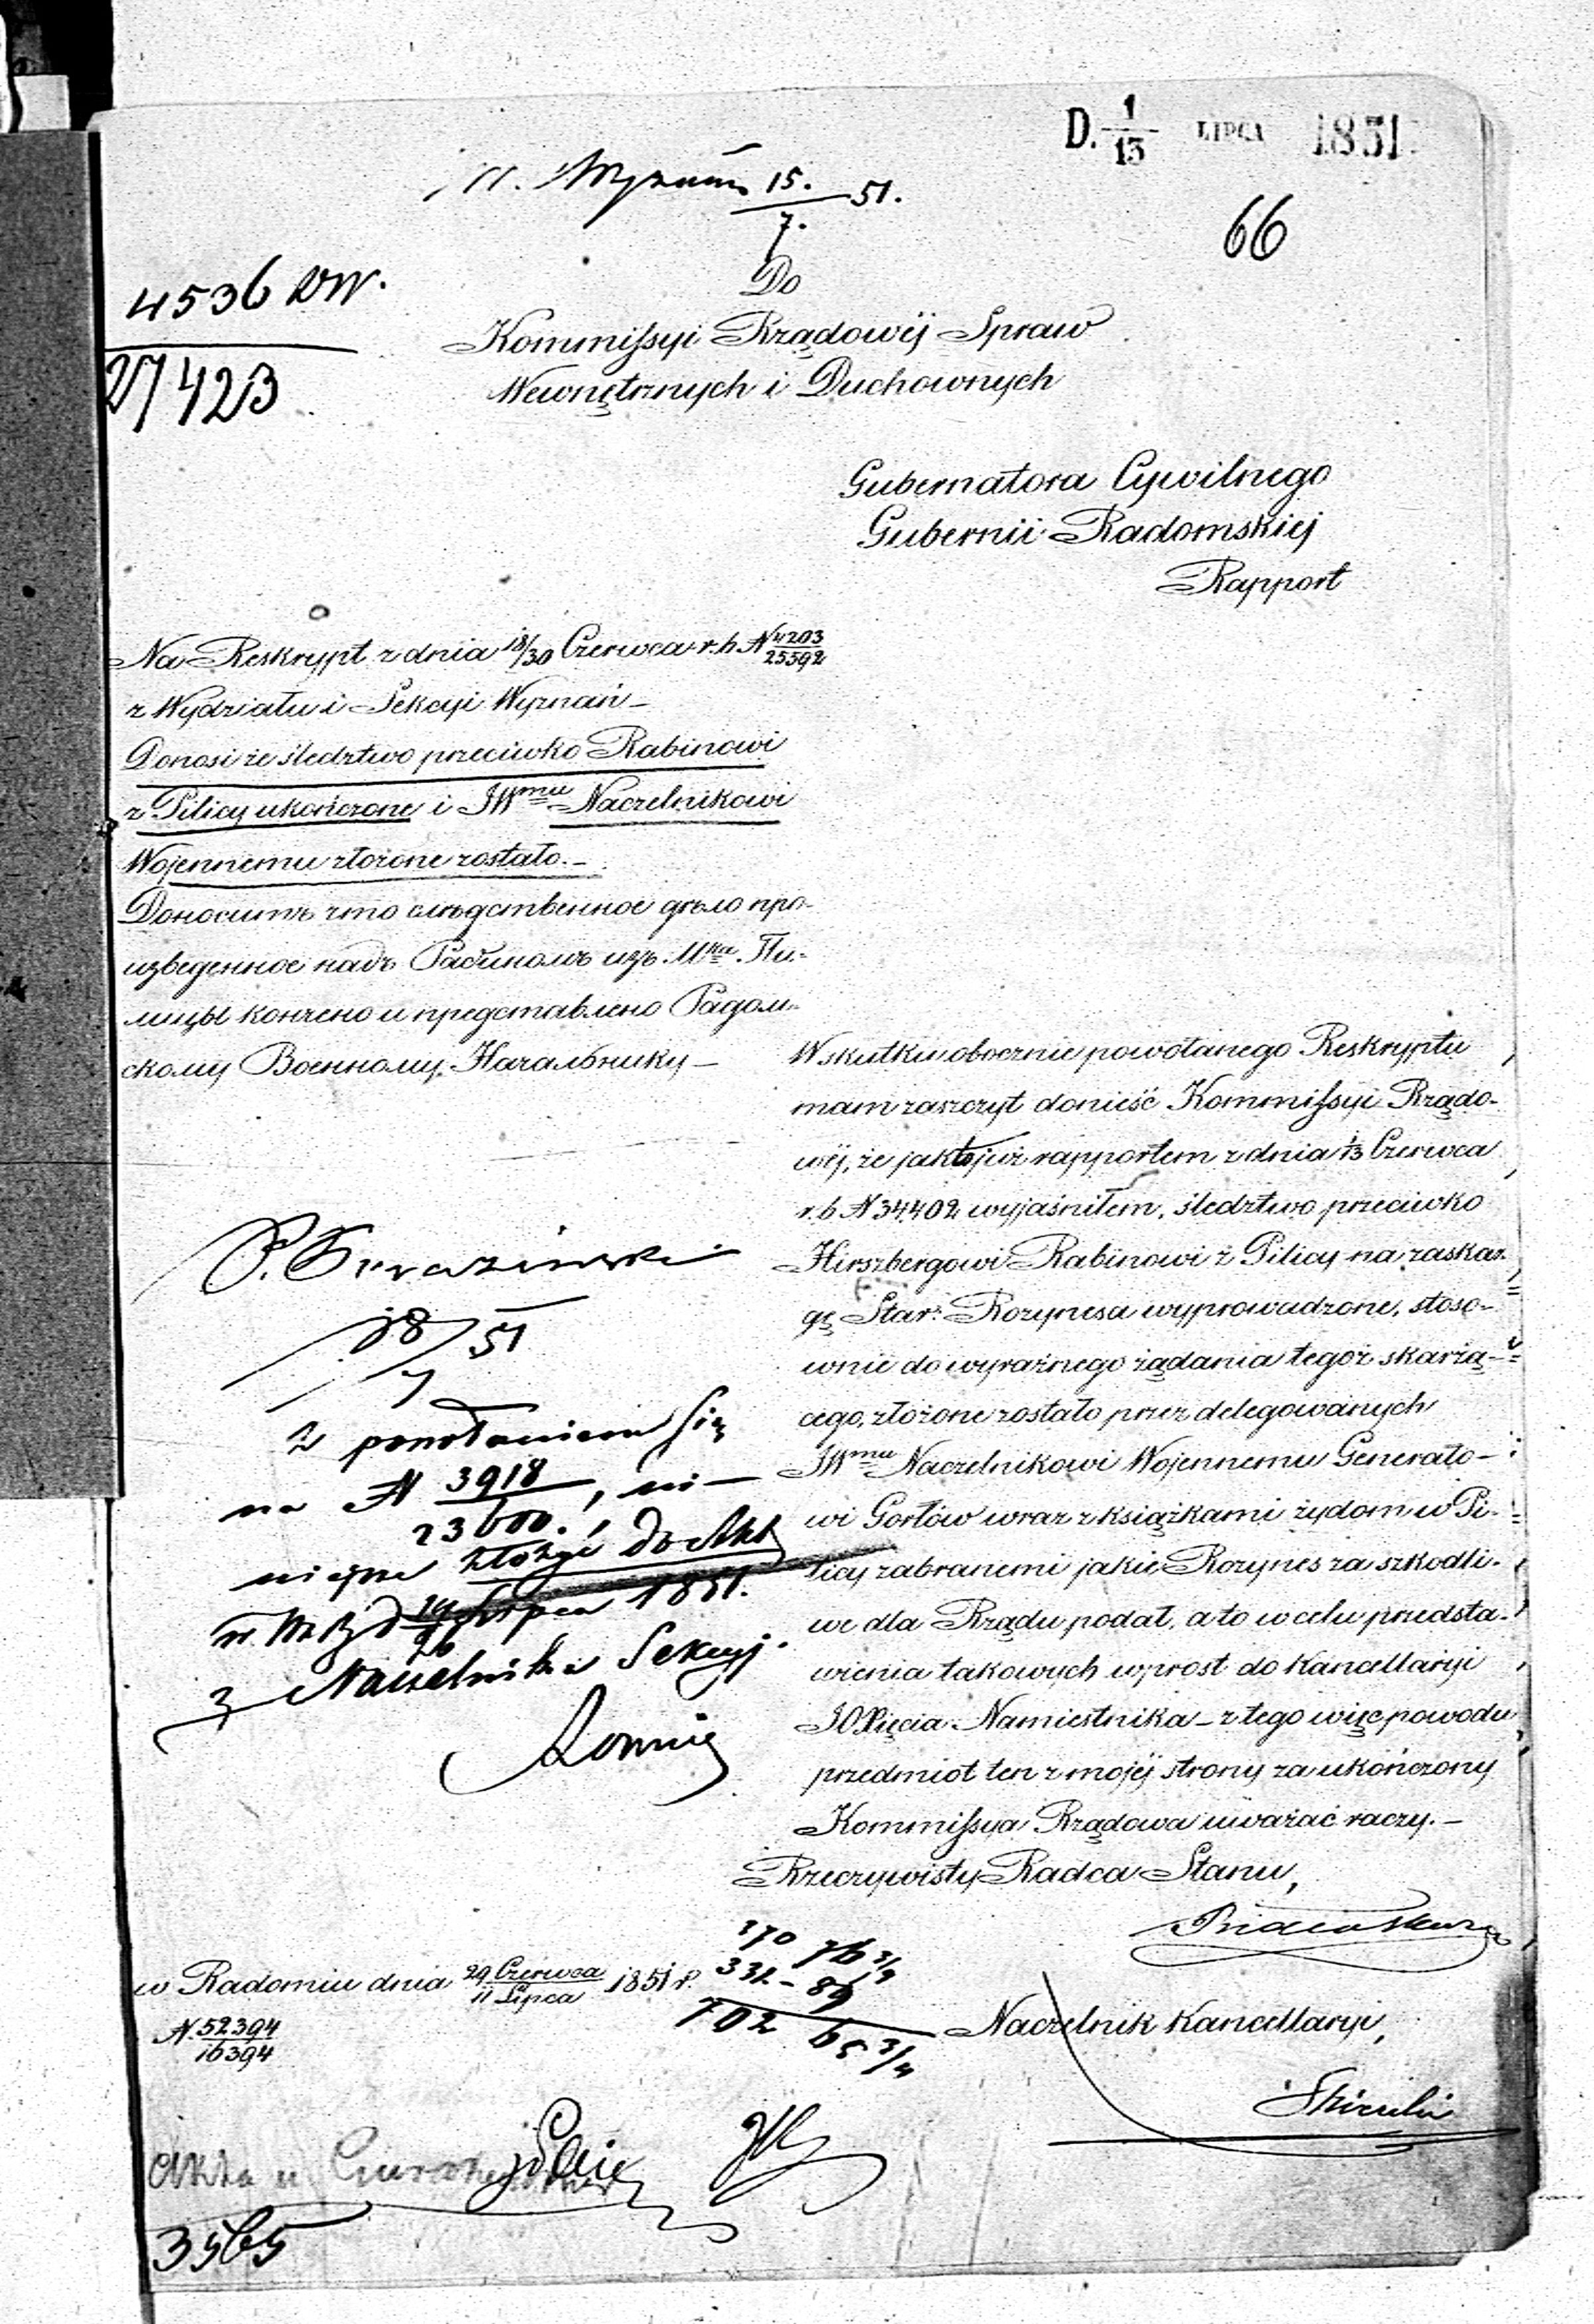 D. 1/13 LIPCA 1851
15./7. 51.
66
4536 WW.
27423
Do
Kommissyi Rządowéj Spraw
Wewnętrznych i Duchownych
Gubernatora Cywilnego
Gubernii Radomskiej
Rapport
Na Reskrypt z dnia 18/30 Czerwca r.b. N 4203/25392
z Wydziału i Sekcyi Wyznań –
Donosi że śledztwo przeciwko Rabinowi
z Pilicy ukończone i JWmu Naczelnikowi
Wojennemu złożone zostało. –
Доноситъ что следственное дѣло про-
изведенное надъ Рабиномъ изъ М-ка Пи-
лицы кончено и представлено Радом-
скому Военному Начальнику –
Wskutku obocznie powołanego Reskryptu
mam zaszczyt donieść Kommissyi Rządo-
wéj, że jak to już rapportem z dnia 1/13 Czerwca
r.b N 34402 wyjaśniłem, śledztwo przeciwko
Hirszbergowi Rabinowi z Pilicy na zaskar-
gę Star: Rozynesa wyprowadzone, stoso-
wnie do wyraźnego żądania tegoż skarżą-
cego, złożone zostało przez delegowanych
JWmu Naczelnikowi Wojennemu Generało-
wi Gorłów wraz z książkami żydom w Pi-
licy zabranemi jakie Rozynes za szkodli-
we dla Rządu podał, a to w celu przedsta-
wienia takowych wprost do Kancellaryi
JO Xięcia Namiestnika – z tego więc powodu
przedmiot ten z mojéj strony za ukończony
Kommissya Rządowa uważać raczy. –
Rzeczywisty Radca Stanu,
18/7 51
z powołaniem się
na N 3918/23600., ni–
niejsze złożyć do Akt
w W. d 14/26 Lipca 1851.
z Naczelnika Sekcyi.
w Radomiu dnia 29 Czerwca/11 Lipca 1851 r.
N. 52394/16394
370 76 3/4
331 – 89
702 65 3/4
Naczelnik Kancellaryi,
Akta u
3565